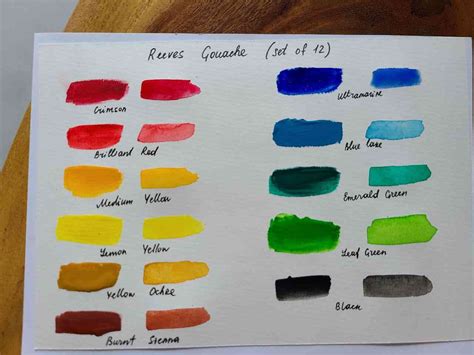 Reeves Gouache (set of 12)
Crimson
Brilliant Red
Medium Yellow
Lemon Yellow
Yellow Ochre
Burnt Sienna
Ultramarine
Blue Lake
Emerald Green
Leaf Green
Black